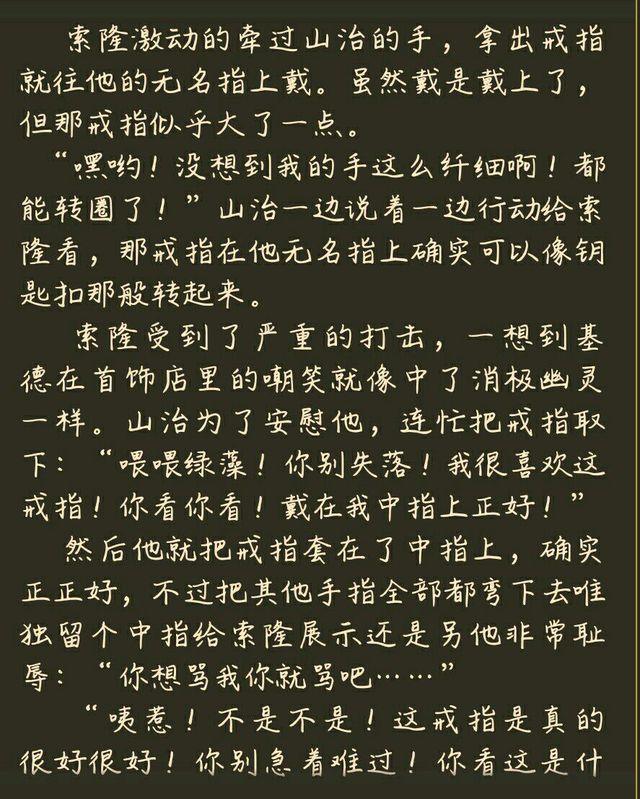 索隆激动的牵过山治的手，拿出戒指
就往他的无名指上戴。虽然戴是戴上了，
但那戒指似乎大了一点。
“嘿哟！没想到我的手这么纤细啊！都
能转圈了！”山治一边说着一边行动给索
隆看，那戒指在他无名指上确实可以像钥
匙扣那般转起来。
索隆受到了严重的打击，一想到基
德在首饰店里的嘲笑就像中了消极幽灵
一样。山治为了安慰他，连忙把戒指取
下：“喂喂绿藻！你别失落！我很喜欢这
戒指！你看你看！戴在我中指上正好！”
然后他就把戒指套在了中指上，确实
正正好，不过把其他手指全部都弯下去唯
独留个中指给索隆展示还是另他非常耻
辱：“你想骂我你就骂吧……”
“咦惹！不是不是！这戒指是真的
很好很好！你别急着难过！你看这是什